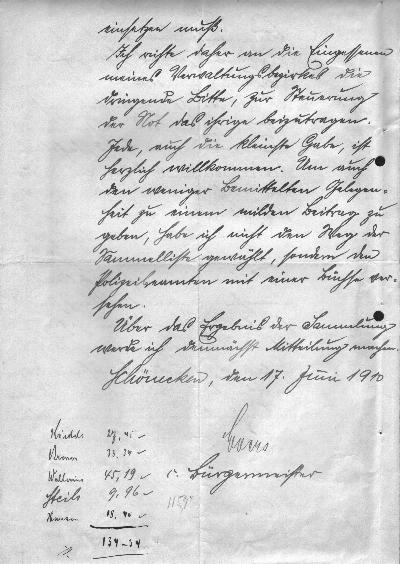 einsetzen muß.
Ich richte daher an die Eingesessenen
meines Verwaltungsbezirkes die
dringende Bitte, zur Steuerung
der Not das ihrige beizutragen.
Jede, auch die kleinste Gabe, ist
herzlich willkommen. Um auch
den weniger Bemittelten Gelegen-
heit zu einem milden Beitrag zu
geben, habe ich nicht den Weg der
Sammelliste gewählt, sondern den
Polizeibeamten mit einer Büchse ver-
sehen.
Über das Ergebnis der Sammlung
werde ich demnächst Mitteilung machen.
Schönecken, den 17. Juni 1910
Bürgermeister
45,19
9,96
15,40
134-34